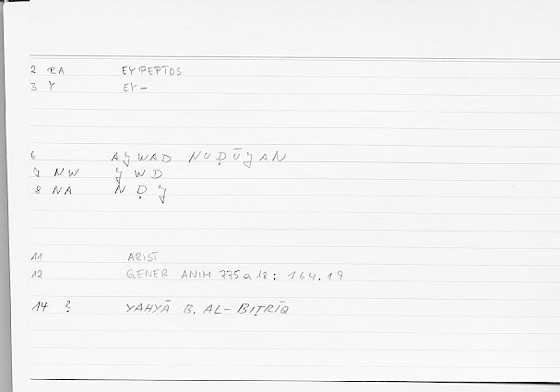 2 RA EYPEPTOS
3 Y EY-
6 AǦWAD NUḌŪǦAN
7 NW ǦWD
8 NA NḌǦ
11 ARIST
12 GENER ANIM 775a18; 164.19
14 ? YAHYĀ B. AL-BIṬRĪQ